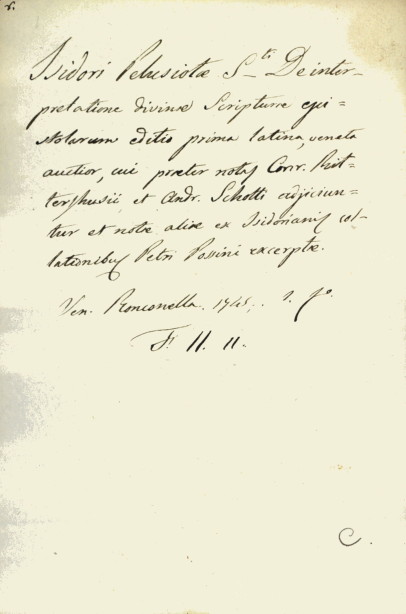 r.
Isidori Pelusiotæ S_ti De inter_
pretatione divinæ Scripturæ epi=
stolarum editio prima latina, veneta
auctior, cui præter notas Conr. Rit=
tershusii et Andr. Schotti adjiciun=
tur et notæ aliæ ex Isidorianis col_
lationibus Petri Possini excerptæ.
Ven. Ronconella. 1745. . 1. fo.
F. II. 11.
C.